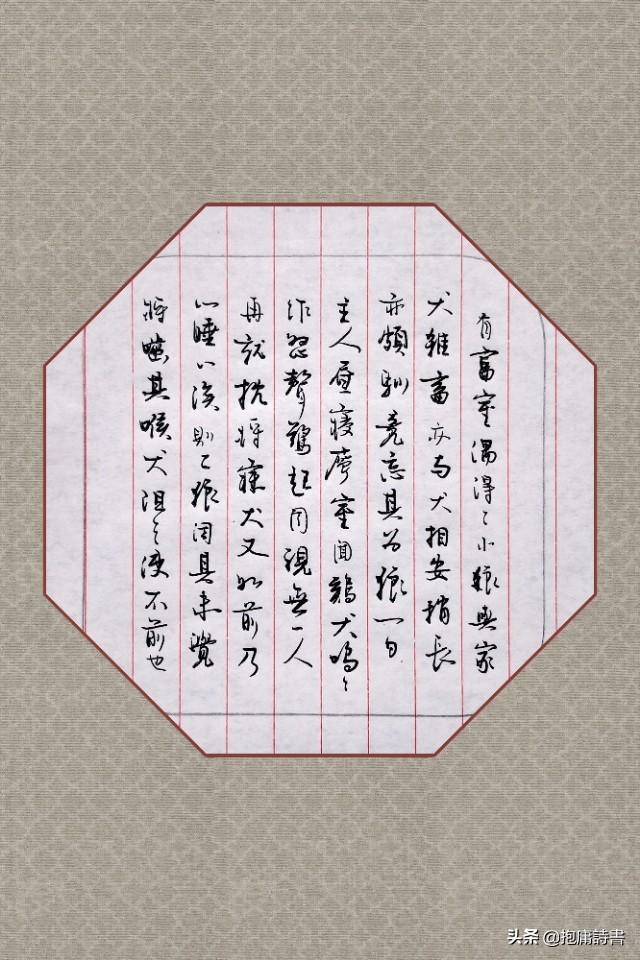 有富室偶得二小狼與家
犬雜畜亦与犬相安稍長
亦頗馴竟忘其为狼一日
主人昼寢廳室聞犬嗚〻
作怒聲驚起周視無一人
再就枕將寐犬又如前乃
睡以俟則二狼伺其未覺
將嚙其喉犬阻之使不前也
头条 @抱庸詩書